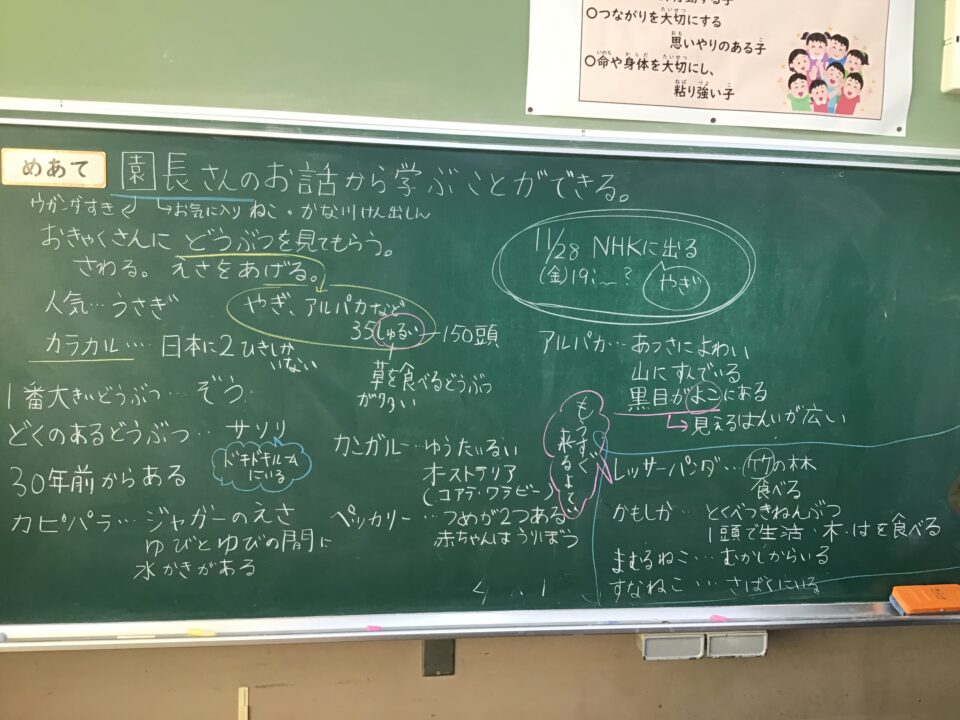 〇つながりを大切にする
思いやりのある子
〇命や身体を大切にし、
粘り強い子
めあて
園長さんのお話から学ぶことができる。
ウガンダすき
お気に入り ねこ・かな川けん出しん
おきゃくさんに どうぶつを見てもらう。
さわる。えさをあげる。
人気…うさぎ
やぎ、アルパカなど
35しゅるい 150頭
草を食べるどうぶつ
が多い
カラカル…日本に2ひきしか
いない
1番大きいどうぶつ…ぞう
どくのあるどうぶつ…サソリ
ドキドキルーム
にいる
30年前からある
カピパラ…ジャガーのえさ
ゆびとゆびの間に
水かきがある
11/28 NHKに出る
(金)19:〜?
やぎ
アルパカ…あつさによわい
山にすんでいる
黒目がよこにある
見えるはんいが広い
カンガルー…ゆうたいるい
オーストラリア
(コアラ・ワラビー)
ペッカリー…つめが2つある
赤ちゃんはうりぼう
もうすぐ
来るよてい
レッサーパンダ…竹の林
食べる
かもしか…とくべつきねんぶつ
1頭で生活・木・はを食べる
まぬるねこ…むかしからいる
すなねこ…さばくにいる